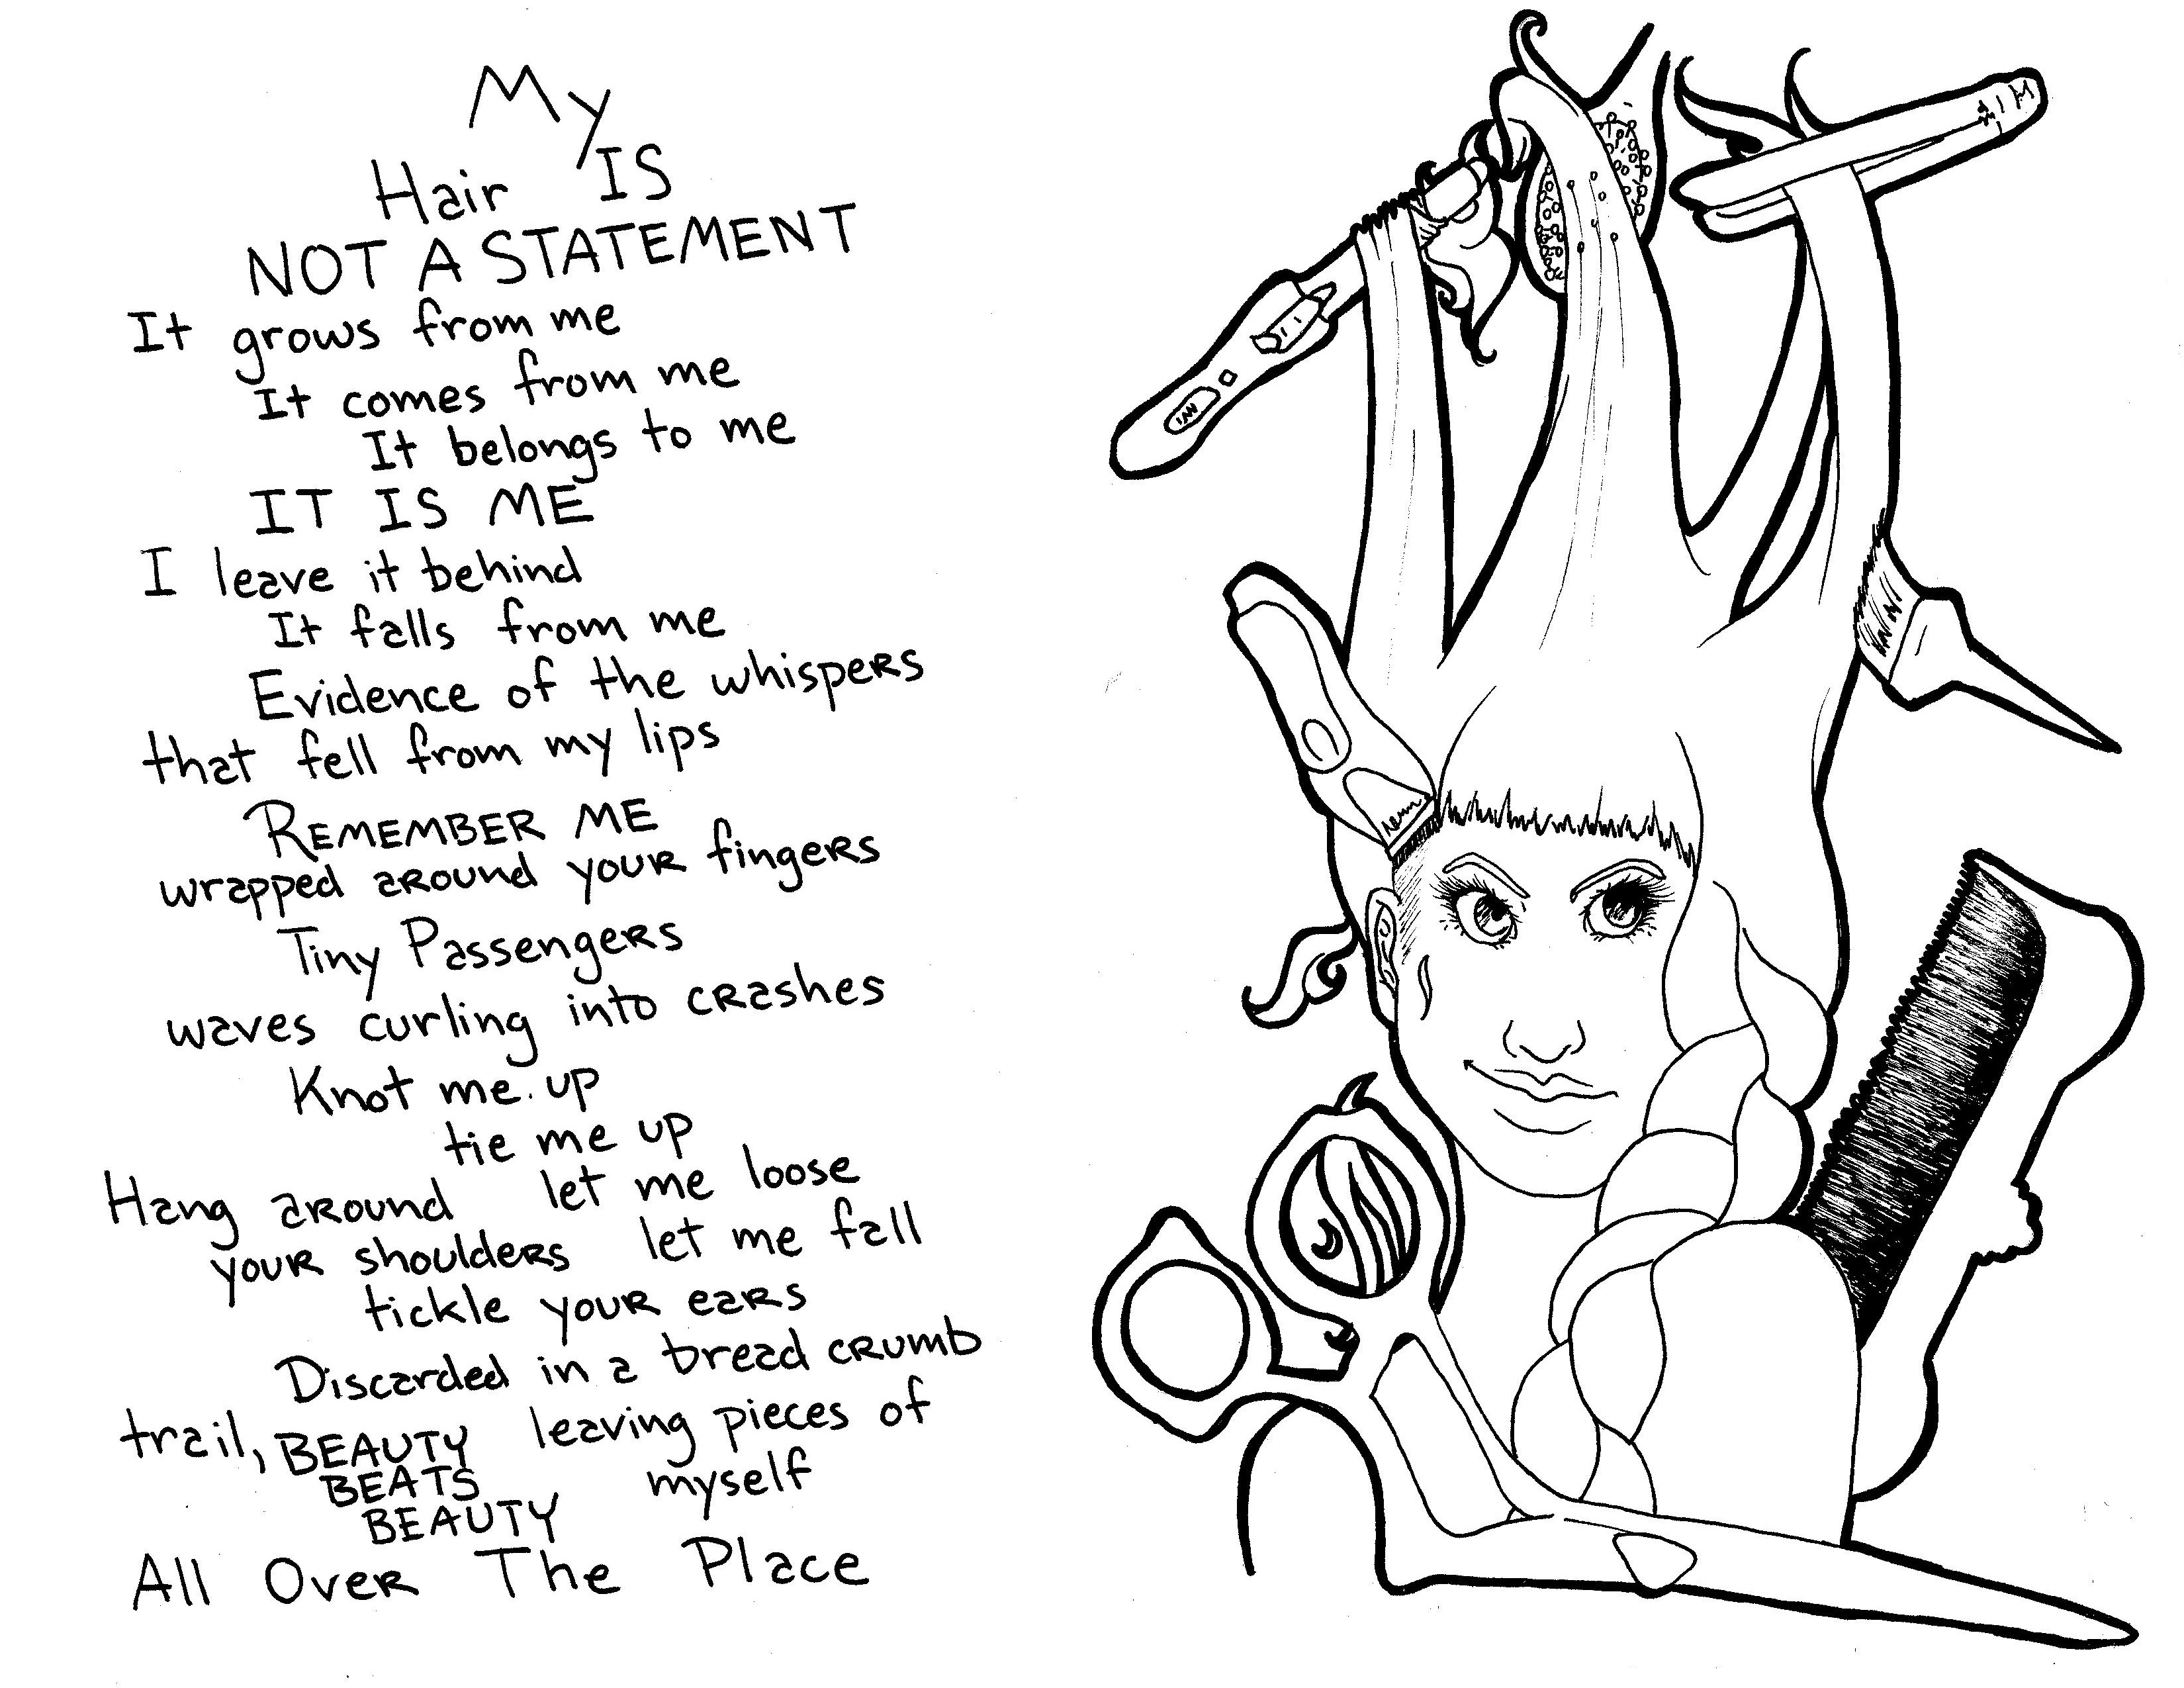 My
Hair IS
NOT A STATEMENT
It grows from me
It comes from me
It belongs to me
IT IS ME
I leave it behind
It falls from me
Evidence of the whispers
that fell from my lips
REMEMBER ME
wrapped around your fingers
Tiny Passengers
waves curling into crashes
Knot me up
tie me up
Hang around let me loose
your shoulders let me fall
tickle your ears
Discarded in a bread crumb
trail, BEAUTY leaving pieces of
BEATS myself
BEAUTY
All Over The Place